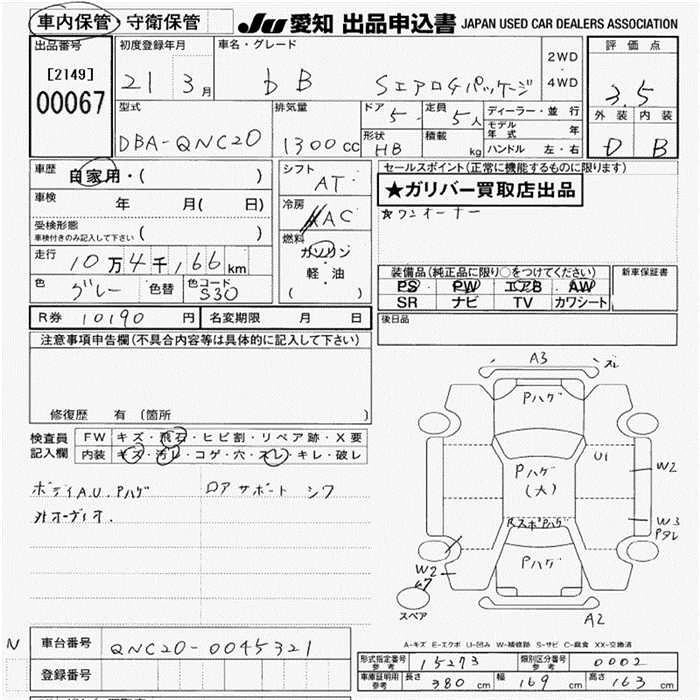 車内保管・守衛保管 JU 愛知 出品申込書 JAPAN USED CAR DEALERS ASSOCIATION
出品番号 初度登録年月 車名・グレード 2WD 評価点
[2149] 21 3月 bB SエアロGパッケージ 4WD 3.5
00067 型式 排気量 ドア 5 定員 5人 ディーラー・並行 外装 内装
DBA-QNC20 1300cc 形状 HB 積載 kg モデル年式 年 D B
ハンドル 左・右
車歴 自家用・( ) シフト AT セールスポイント(正常に機能するものに限ります)
★ガリバー買取店出品
車検 年 月( 日) 冷房 AC ☆ワンオーナー
受検形態 ( )
車検付きのみ記入して下さい
燃料 ガソリン
走行 10万4千166km 軽・油 装備品(純正品に限り○をつけてください) 新車保証書
( ) PS PW エアB AW
色 グレー 色替 色コード S30 SR ナビ TV カワシート
R券 10190円 名変期限 月 日 後日品
注意事項申告欄(不具合内容等は具体的に記入して下さい)
修復歴 有 (箇所 )
検査員 FW キズ・飛石・ヒビ割・リペア跡・X要
記入欄 内装 キズ・汚レ・コゲ・穴・スレ・キレ・破レ
ボディA.U.Pハゲ ロアサポート シワ
外オーディオ.
A3 ズレ
Pハゲ
U1
W2
Pハゲ
(大)
W3
Pタレ
RスポPハゲ
Pハゲ
W2
67
スペア
A2
A-キズ E-エクボ U-凹み W-補修跡 S-サビ C-腐食 XX-交換済
N 車台番号 QNC20-0045321
登録番号
形式指定番号 参考 15273 類別区分番号 参考 0002
車庫証明用 参考 長さ 380cm 幅 169cm 高さ 163cm